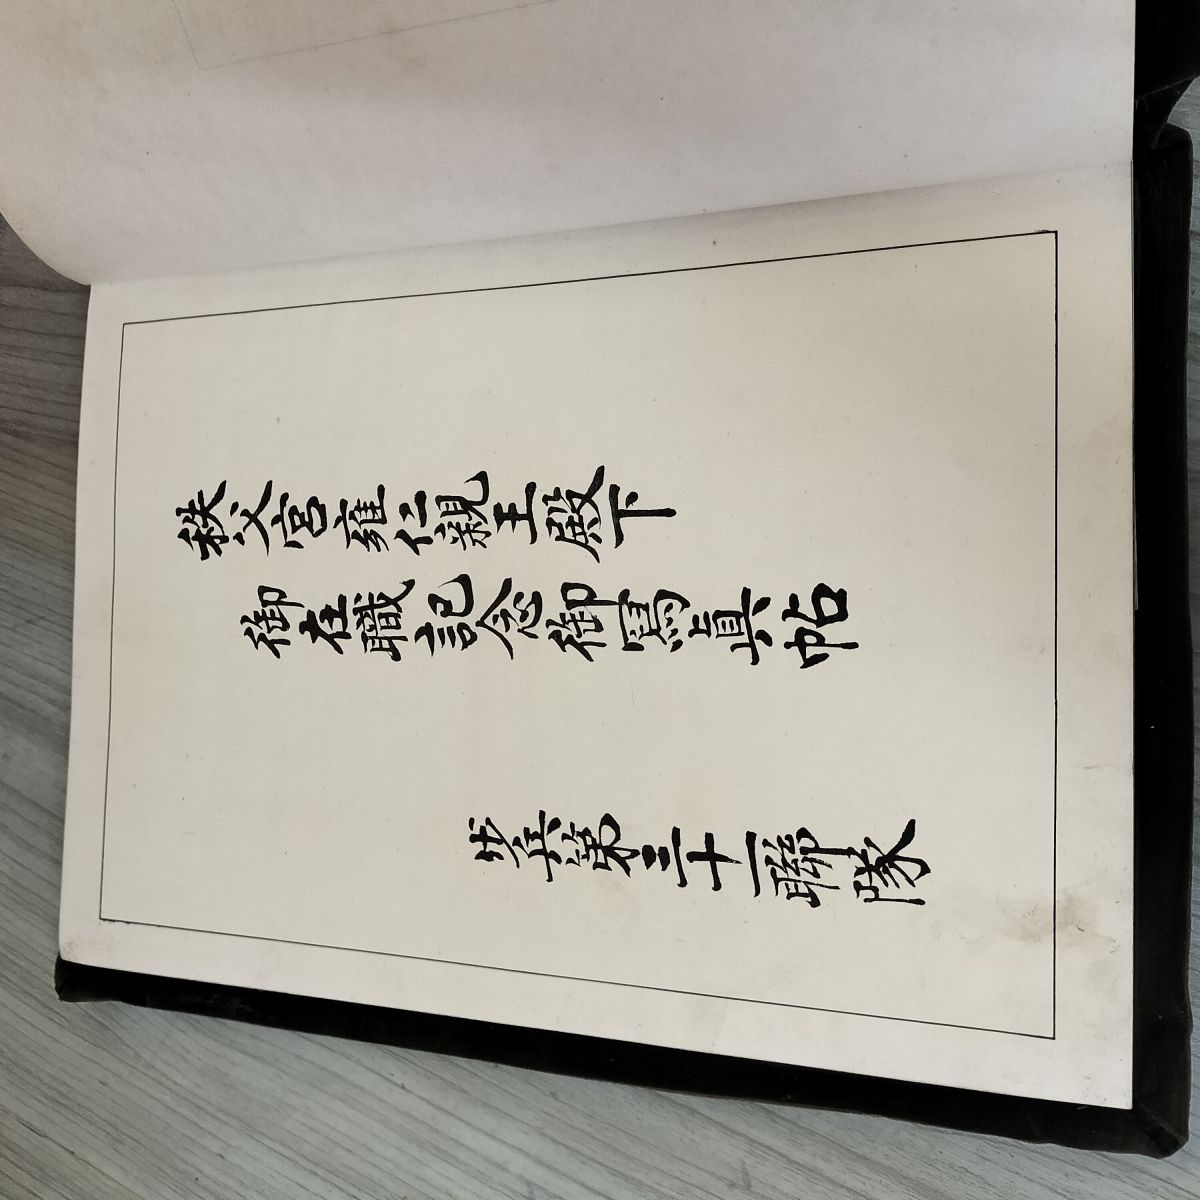 秩父宮雍仁親王殿下
御在職記念御寫眞帖
歩兵第三十一聯隊